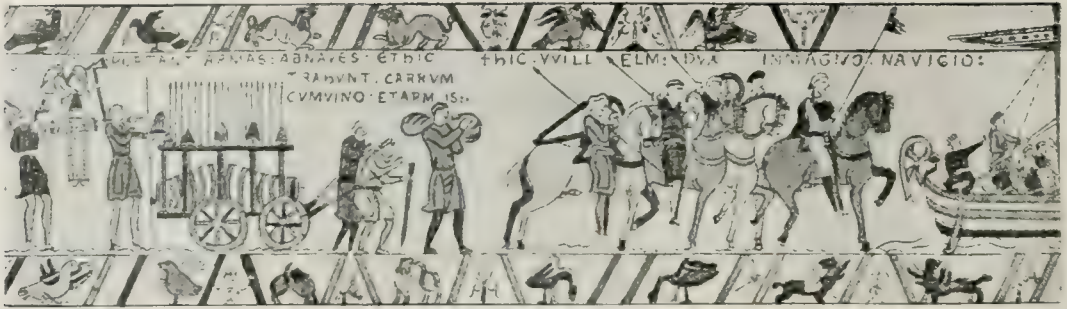 PORTANT ARMAS: ADNAVES: EThIC
TRAhVNT. CARRVM
CVMVINO. ETARMIS:.
†hIC. VVILL ELM: DVX INMAGNO: NAVIGIO: